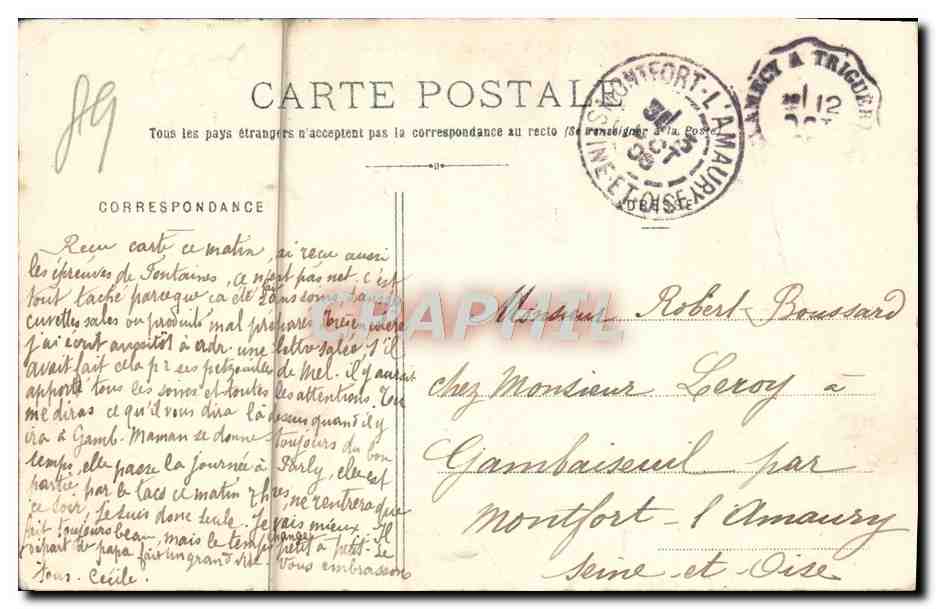 819
CARTE POSTALE
Tous les pays étrangers n'acceptent pas la correspondance au recto (Se renseigner à la Poste)
MONTFORT-L'AMAURY
SEINE-ET-OISE
CLAMECY A TRIGUERES
12
CORRESPONDANCE
ADRESSE
Reçu carte ce matin, ai reçu aussi
les épreuves de Fontaines, ce n'est pas net. c'est
tout taché parceque ça été fait sans soins, dans des
cuvettes sales ou produits mal préparés
J'ai écrit aussitôt à une lettre salée, s'il
avait fait cela pr ses de Mel. il y aurait
apporté tous les soins et toutes les attentions. Tu
me diras ce qu'il vous dira là dessus quand il y
ira à Gamb. Maman se donne toujours du bon
temps, elle passe la journée à Parly, elle est
partie par le tacs ce matin 7 hres, ne rentrera que
ce soir, Je suis donc seule. Je vais mieux. Il
fait toujours beau, mais le temps change petit à petit. Le
départ de papa fait un grand vide. Je vous embrasse
tous. Cécile.
Monsieur Robert Boussard
chez Monsieur Leroy à
Gambaiseuil par
Montfort-l'Amaury
Seine-et-Oise
CPAPHIL